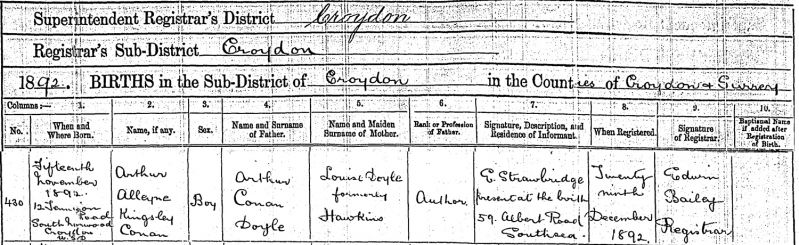 Superintendent Registrar's District Croydon
Registrar's Sub-District Croydon
1892. BIRTHS in the Sub-District of Croydon in the Counties of Croydon & Surrey
Columns:— 1. 2. 3. 4. 5. 6. 7. 8. 9. 10.
No. When and Where Born. Name, if any. Sex. Name and Surname of Father. Name and Maiden Surname of Mother. Rank or Profession of Father. Signature, Description, and Residence of Informant. When Registered. Signature of Registrar. Baptismal Name if added after Registration of Birth.
430
Fifteenth
November
1892.
12 Tennison
Road
South Norwood
Croydon
U.S.D
Arthur
Alleyne
Kingsley
Conan
Boy
Arthur
Conan
Doyle
Louise Doyle
formerly
Hawkins
Author
E. Strawbridge
present at the birth
59. Albert Road
Southsea.
Twenty
ninth
December
1892
Edwin
Bailey
Registrar